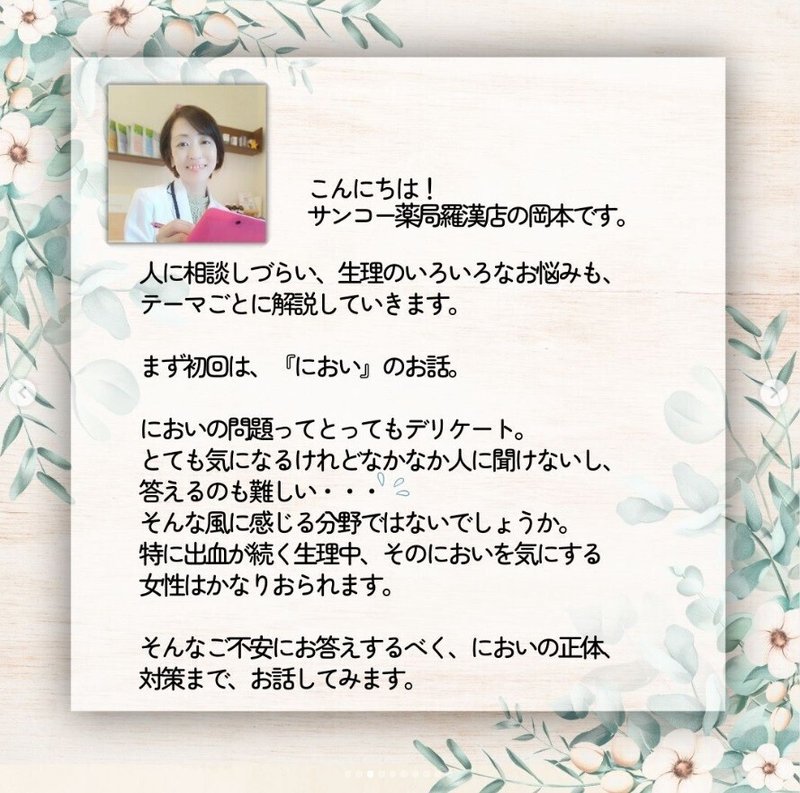 こんにちは！
サンコー薬局羅漢店の岡本です。
人に相談しづらい、生理のいろいろなお悩みも、
テーマごとに解説していきます。
まず初回は、『におい』のお話。
においの問題ってとってもデリケート。
とても気になるけれどなかなか人に聞けないし、
答えるのも難しい・・・
そんな風に感じる分野ではないでしょうか。
特に出血が続く生理中、そのにおいを気にする
女性はかなりおられます。
そんなご不安にお答えするべく、においの正体、
対策まで、お話してみます。